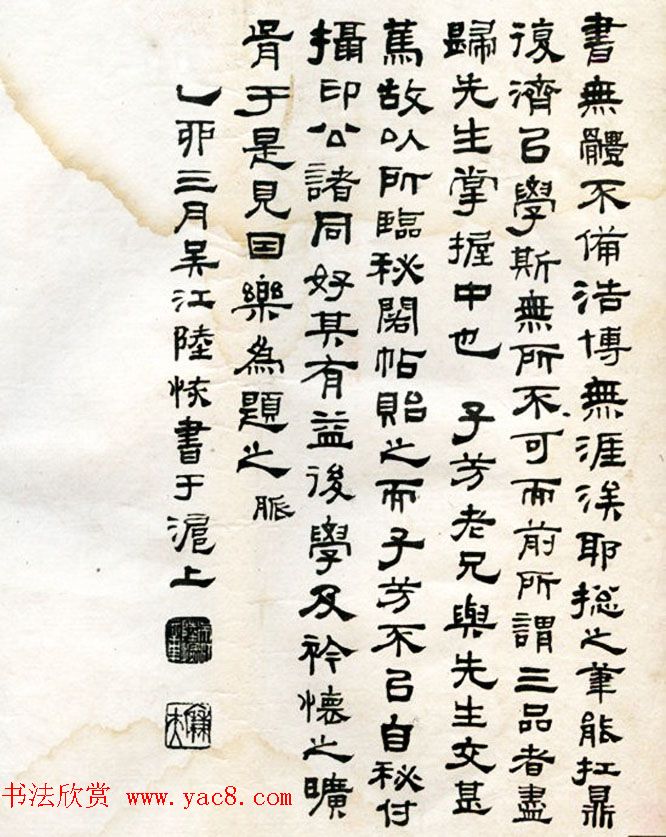 書無體不備浩博無涯涘耶総之筆能扛鼎
復濟㠯學斯無所不可而前所謂三品者盡
歸先生掌握中也 子芳老兄與先生交甚
篤故以所臨秘閣帖貽之而子芳不㠯自秘付
攝印公諸同好其有益後學及衿懷之曠
胥于是見因樂為題之 脈
乙卯三月吴江陸恢書于滬上
书法欣赏 www.yac8.com